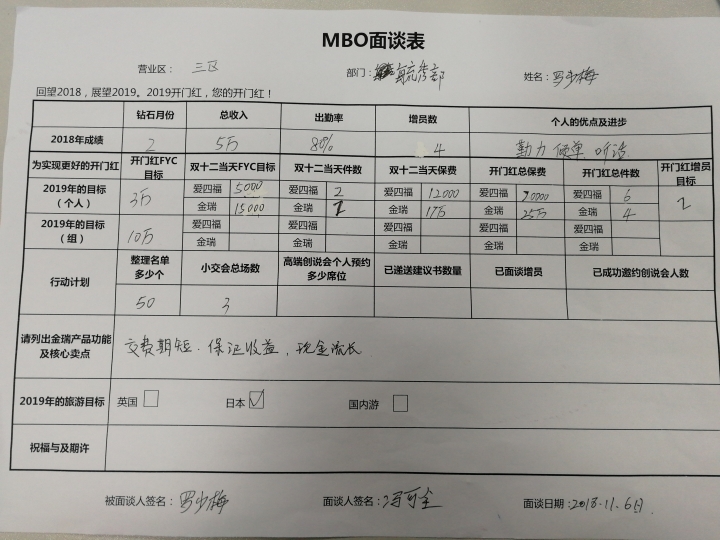 MBO面谈表
营业区： 三区 部门： 毓秀部 姓名： 罗少梅
回望2018，展望2019。2019开门红，您的开门红！
钻石月份 总收入 出勤率 增员数 个人的优点及进步
2018年成绩 2 5万 80% 4 勤力 倾单 听话
为实现更好的开门红 开门红FYC目标 双十二当天FYC目标 双十二当天件数 双十二当天保费 开门红总保费 开门红总件数 开门红增员目标
2019年的目标（个人） 3万 爱四福 5000 爱四福 2 爱四福 12000 爱四福 爱四福 6 2
金瑞 15000 金瑞 金瑞 17万 金瑞 25万 金瑞 4
2019年的目标（组） 10万 爱四福 爱四福 爱四福 爱四福 爱四福
金瑞 金瑞 金瑞 金瑞 金瑞
行动计划 整理名单多少个 小交会总场数 高端创说会个人预约多少席位 已递送建议书数量 已面谈增员 已成功邀约创说会人数
50 3
请列出金瑞产品功能及核心卖点 交费期短．保证收益，现金流长
2019年的旅游目标 英国 日本 ✓ 国内游
祝福与及期许
被面谈人签名：罗少梅 面谈人签名：冯可全 面谈日期：2018.11.6日